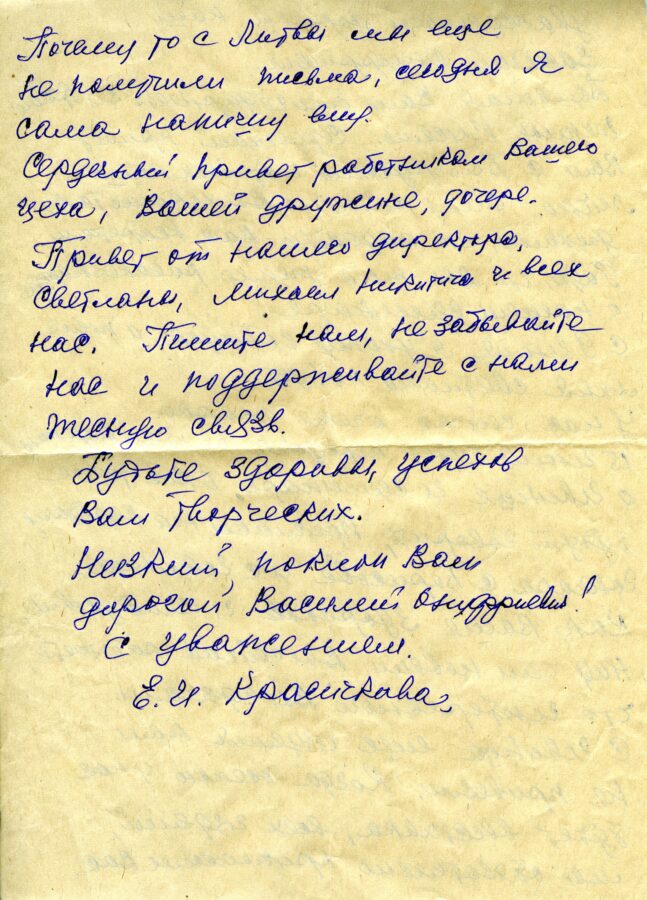 Почему то с Литвы мы еще
не получили письма, сегодня я
сама напишу ему.
Сердечный привет работникам Вашего
цеха, Вашей дружине, дочере.
Привет от нашего директора,
Светланы, Михаил Никитича и всех
нас. Пишите нам, не забывайте
нас и поддерживайте с нами
тесную связь.
Будьте здоровы, успехов
Вам творческих.
Низкий, поклон Вам
дорогой, Василий Онуфриевич!
С уважением.
Е. И. Красичкова,